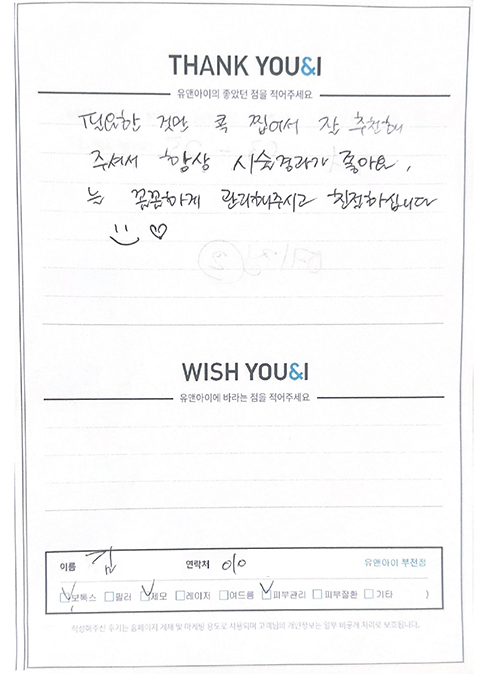 THANK YOU&I
유앤아이의 좋았던 점을 적어주세요
필요한 것만 콕 찝어서 잘 추천해
주셔서 항상 시술결과가 좋아요,
늘 꼼꼼하게 관리해주시고 친절하십니다
WISH YOU&I
유앤아이에 바라는 점을 적어주세요
이름 김 연락처 010 유앤아이 부천점
보톡스 필러 제모 레이저 여드름 피부관리 피부질환 기타 )
작성해주신 수기는 홈페이지 게재 및 마케팅 용도로 사용되며 고객님의 개인정보는 일부 비공개 처리로 보호됩니다.